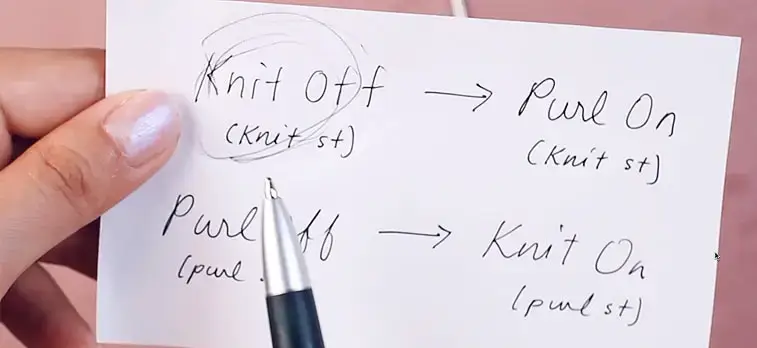 Knit Off → Purl On
(Knit st) (Knit st)
Purl → Knit On
(purl (purl st)